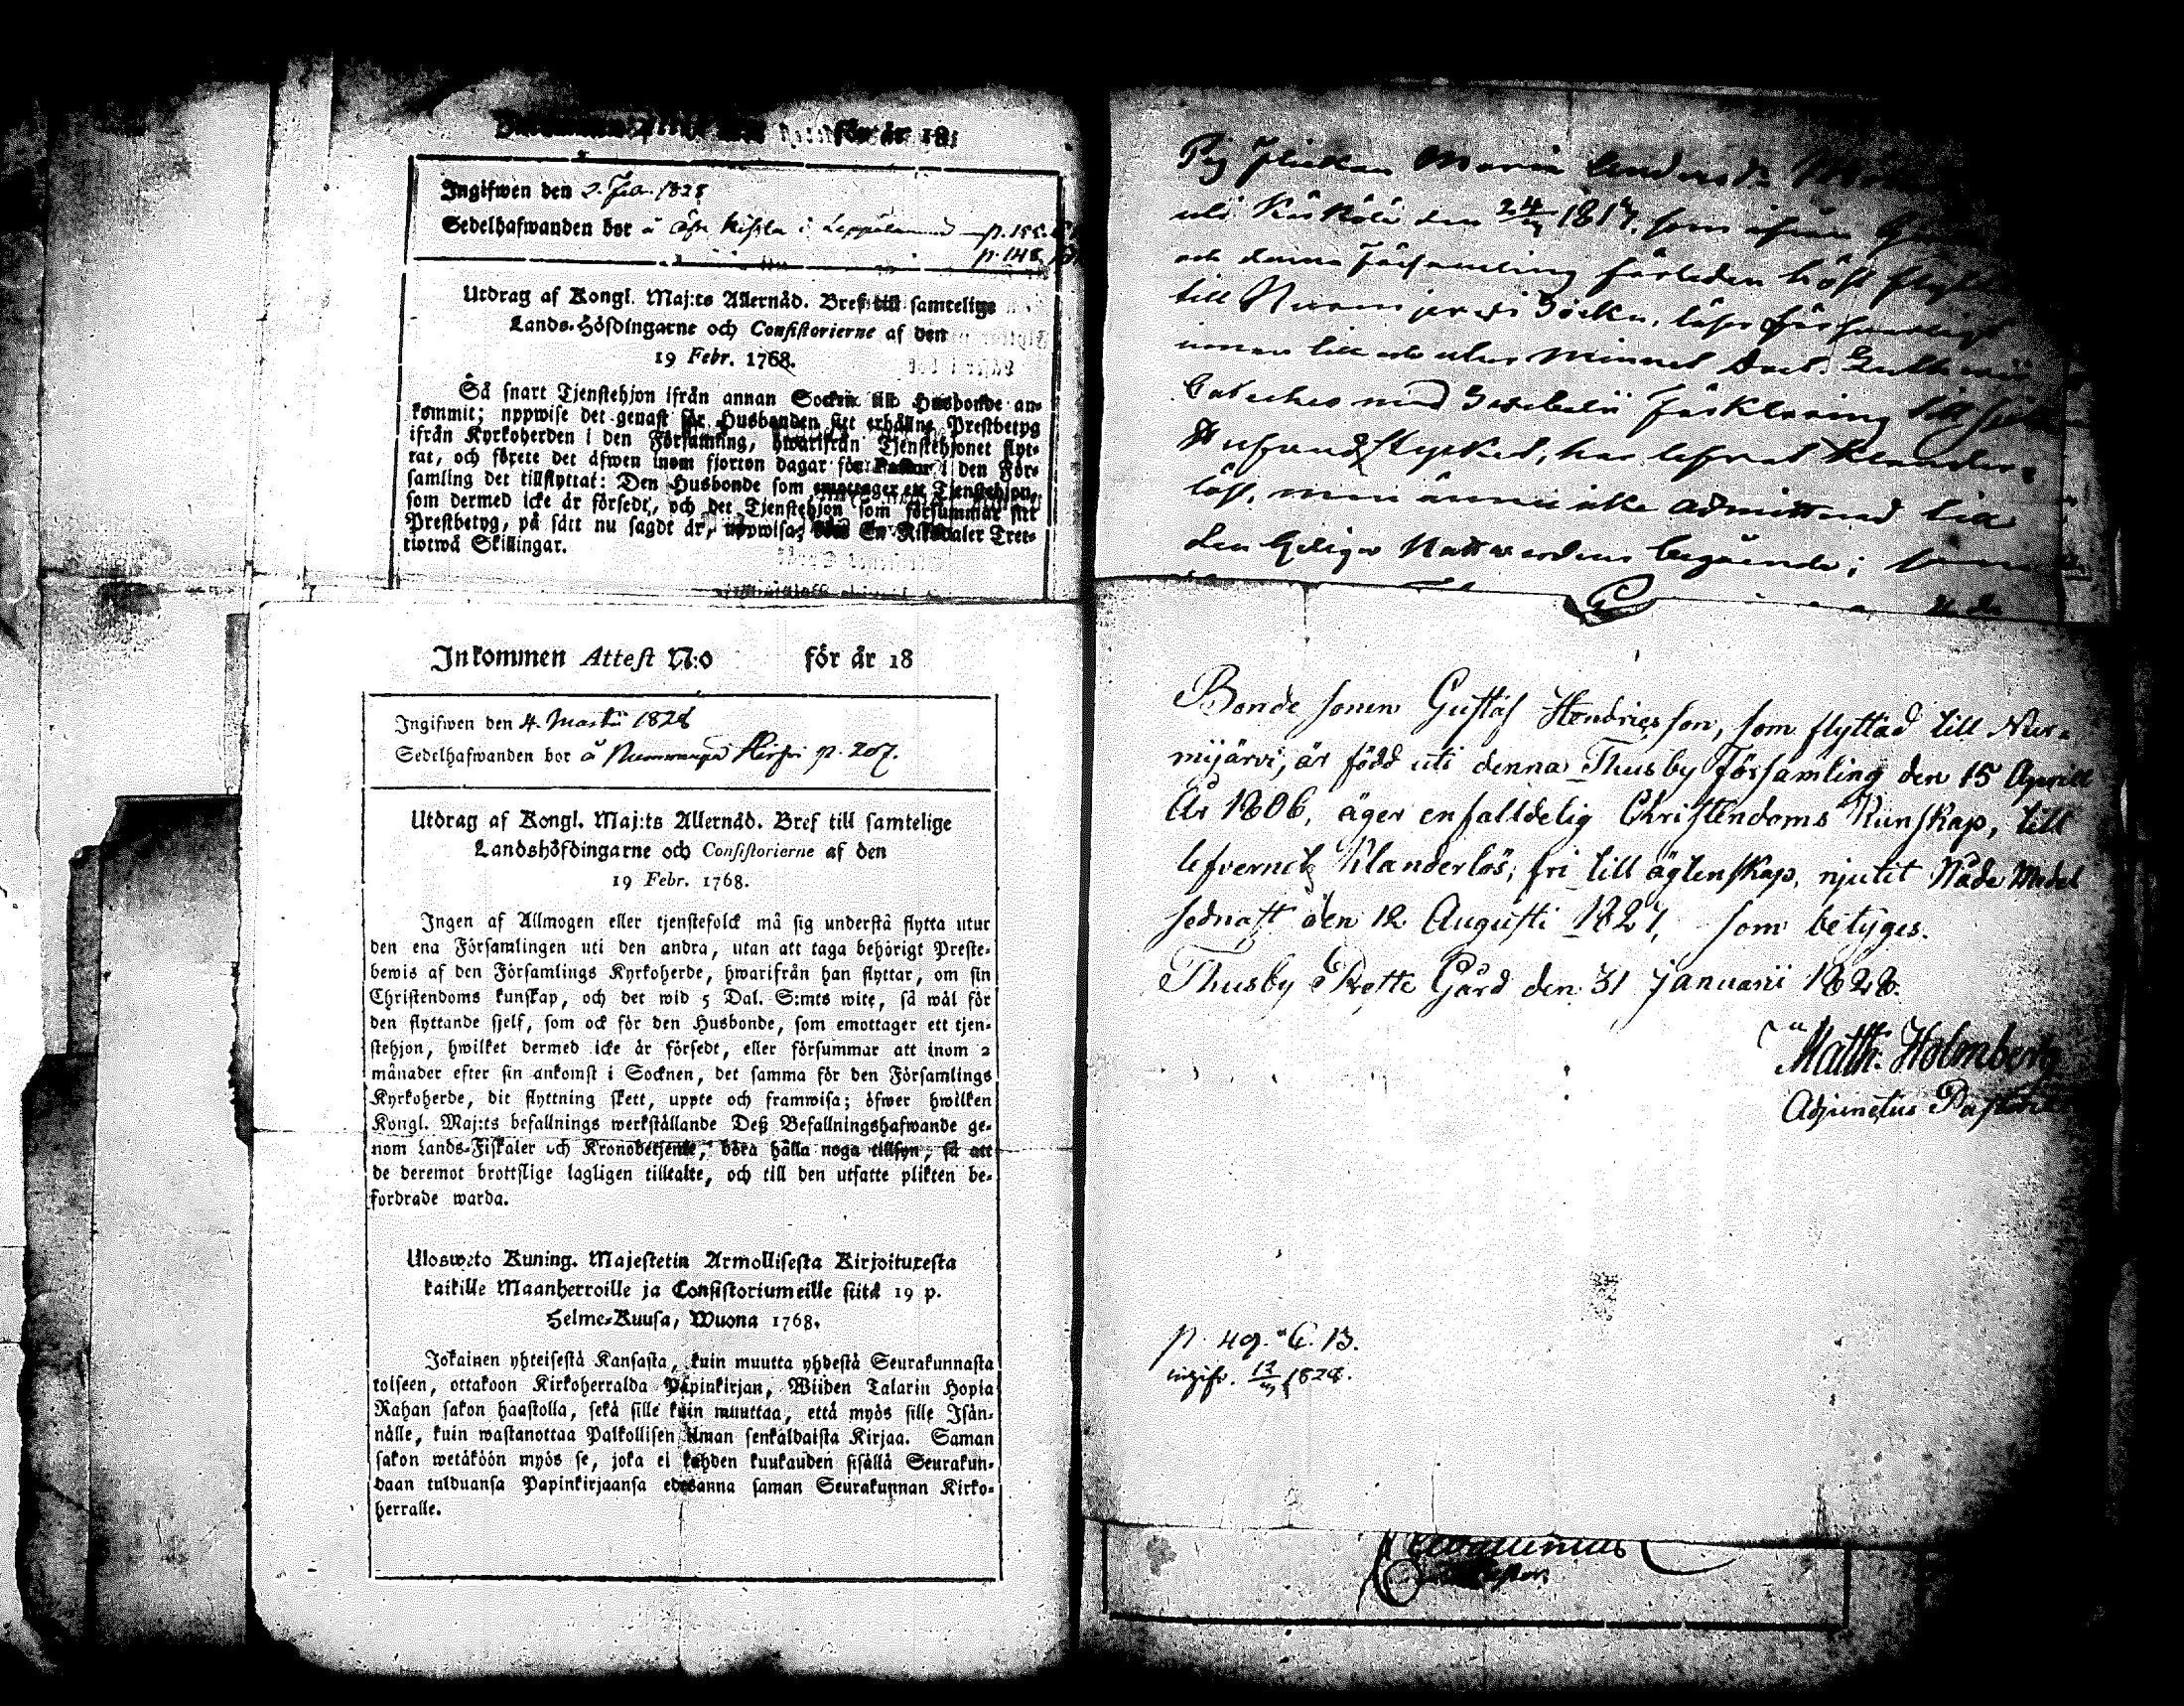 för år 18
Ingifwen den 2. Feb. 1828
Sedelhafwanden bor å Kissla i Leppälamno p. 155.
p. 148.
Utdrag af Kongl. Maj:ts Allernåd. Bref till samtelige
Lands-Höfdingarne och Consistorierne af den
19 Febr. 1768.
Så snart Tjenstehjon ifrån annan Socken till Husbonde an-
kommit; uppwise det genast för Husbonden sitt erhållne Prestbetyg
ifrån Kyrkoherden i den Församling, hwarifrån Tjenstehjonet flyt-
tat, och förete det äfwen inom fjorton dagar för Pastor i den För-
samling det tillflyttat: Den Husbonde som emottager ett Tjenstehjon,
som dermed icke är försedt, och det Tjenstehjon som försummar sitt
Prestbetyg, på sätt nu sagdt är, uppwisa, En Riksdaler Tret-
tiotwå Skillingar.
Inkommen Attest N:o för år 18
Ingifwen den 4. Martii 1828
Sedelhafwanden bor å Nummenpä Hirfvi p. 207.
Utdrag af Kongl. Maj:ts Allernåd. Bref till samtelige
Landshöfdingarne och Consistorierne af den
19 Febr. 1768.
Ingen af Allmogen eller tjenstefolck må sig understå flytta utur
den ena Församlingen uti den andra, utan att taga behörigt Preste-
bewis af den Församlings Kyrkoherde, hwarifrån han flyttar, om sin
Christendoms kunskap, och det wid 5 Dal. S:mts wite, så wäl för
den flyttande sjelf, som ock för den Husbonde, som emottager ett tjen-
stehjon, hwilket dermed icke är försedt, eller försummar att inom 2
månader efter sin ankomst i Socknen, det samma för den Församlings
Kyrkoherde, dit flyttning skett, uppte och framwisa; öfwer hwilken
Kongl. Maj:ts befallnings werkställande Deß Befallningshafwande ge-
nom Lands-Fiskaler och Kronobetjente, böra hålla noga tillsyn, så att
de deremot brottslige lagligen tilltalte, och till den utsatte plikten be-
fordrade warda.
Ulosweto Kuning. Majestetin Armollisesta Kirjoituxesta
kaikille Maanherroille ja Consistoriumeille siitä 19 p.
Helme-Kuusa, Wuona 1768.
Jokainen yhteisestä Kansasta, kuin muutta yhdestä Seurakunnasta
toiseen, ottakoon Kirkoherralda Päpinkirjan, Wiiden Talarin Hopia
Rahan sakon haastolla, sekä sille kuin muuttaa, että myös sille Isän-
nälle, kuin wastanottaa Palkollisen ilman senkaldaista Kirjaa. Saman
sakon wetäköön myös se, joka ei kahden kuukauden sisällä Seurakun-
daan tulduansa Papinkirjaansa edesanna saman Seurakunnan Kirko-
herralle.
Pig Flickan Maria Andersd:r
uti Kiskola den 24/ 1817. som ifrån
och denna Församling förleden höst flyttat
till Nurmijerwi Socken, läser försvarligt
innan till och utur Minnet Doct. Luth. min
Cateches med Svebelii Förklaring till
Hufvudstycket, har lefvat klander-
löst, men ännu icke admitterad till
den heliga Nattvardens begående;
Bonde sonen Gustaf Hendricsson, som flyttad till Nur-
mijärvi, är född uti denna Thusby Församling den 15 Aprill
År 1806, äger enfalldelig Christendoms Kunskap, till
lefvernet Klanderlös, fri till ägtenskap, njutit Nåde Medel
sednast den 12 Augusti 1827, som betyges.
Thusby Prette Gård den 31 Januarii 1828.
Matth. Holmberg
Adjunctus Pastoris
p. 49. C. 13.
ingifv. 12/ 1828.